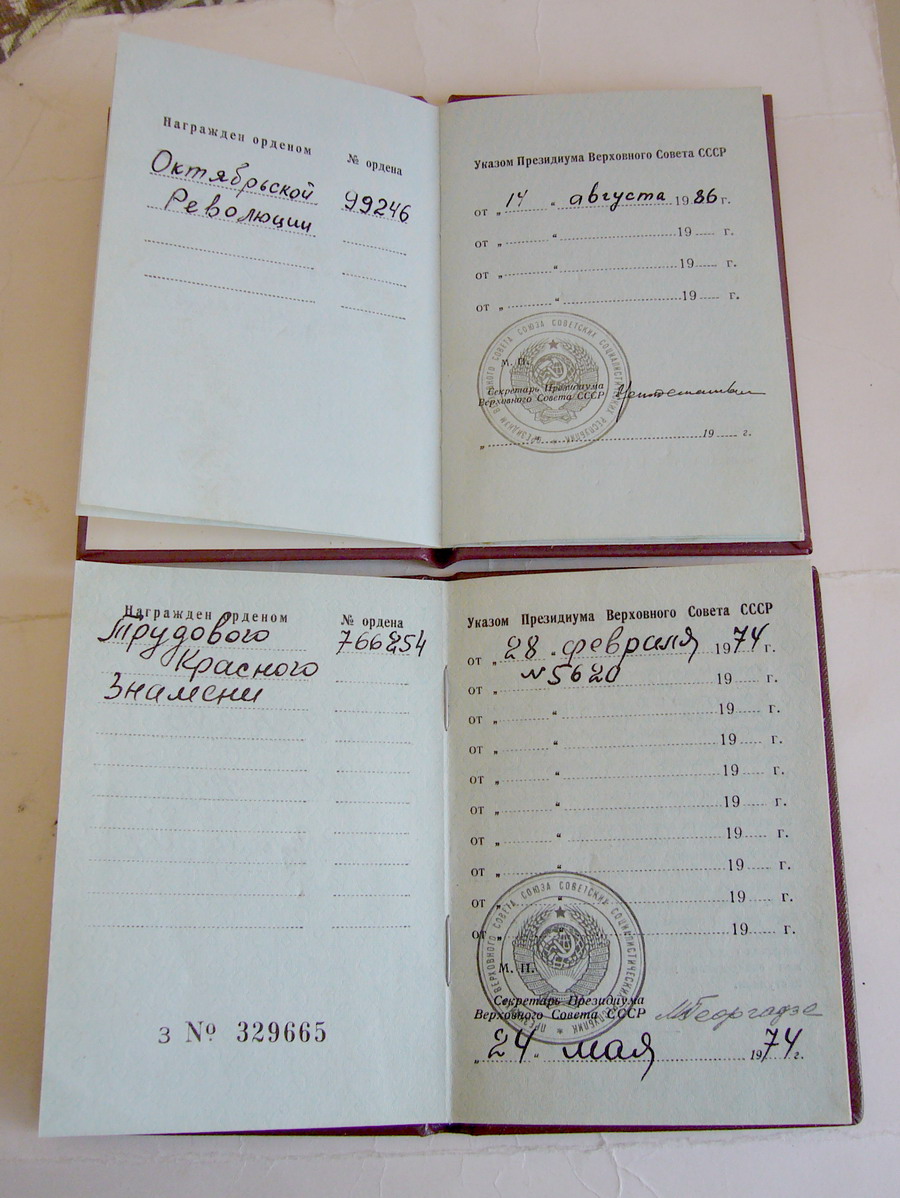 Награжден орденом
№ ордена
Октябрьской
Революции
99246
Указом Президиума Верховного Совета СССР
от „ 14 “ августа 1986 г.
от „ “ 19 г.
от „ “ 19 г.
от „ “ 19 г.
М. П.
Секретарь Президиума
Верховного Совета СССР
ПРЕЗИДИУМ ВЕРХОВНОГО СОВЕТА СОЮЗА СОВЕТСКИХ СОЦИАЛИСТИЧЕСКИХ РЕСПУБЛИК
„ “ 19 г.
Награжден орденом
№ ордена
Трудового
766254
Красного
Знамени
3 № 329665
Указом Президиума Верховного Совета СССР
от „ 28 “ февраля 1974 г.
от „ № 5620 19 г.
от „ “ 19 г.
от „ “ 19 г.
от „ “ 19 г.
от „ “ 19 г.
от „ “ 19 г.
от „ “ 19 г.
от „ “ 19 г.
от „ “ 19 г.
М. П.
Секретарь Президиума
Верховного Совета СССР МГеоргадзе
ПРЕЗИДИУМ ВЕРХОВНОГО СОВЕТА СОЮЗА СОВЕТСКИХ СОЦИАЛИСТИЧЕСКИХ РЕСПУБЛИК
„ 24 “ мая 1974 г.